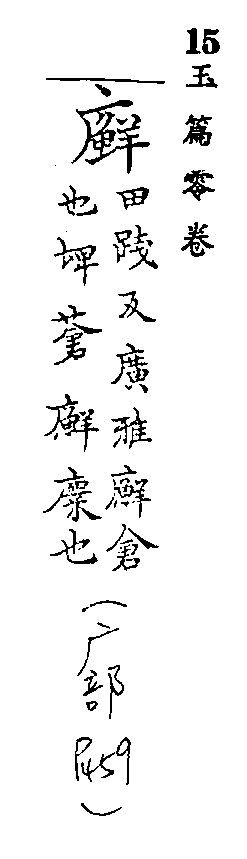 15 玉篇零卷
廯
田踐反廣雅廯倉
也埤蒼廯廩也
(广部 P459)